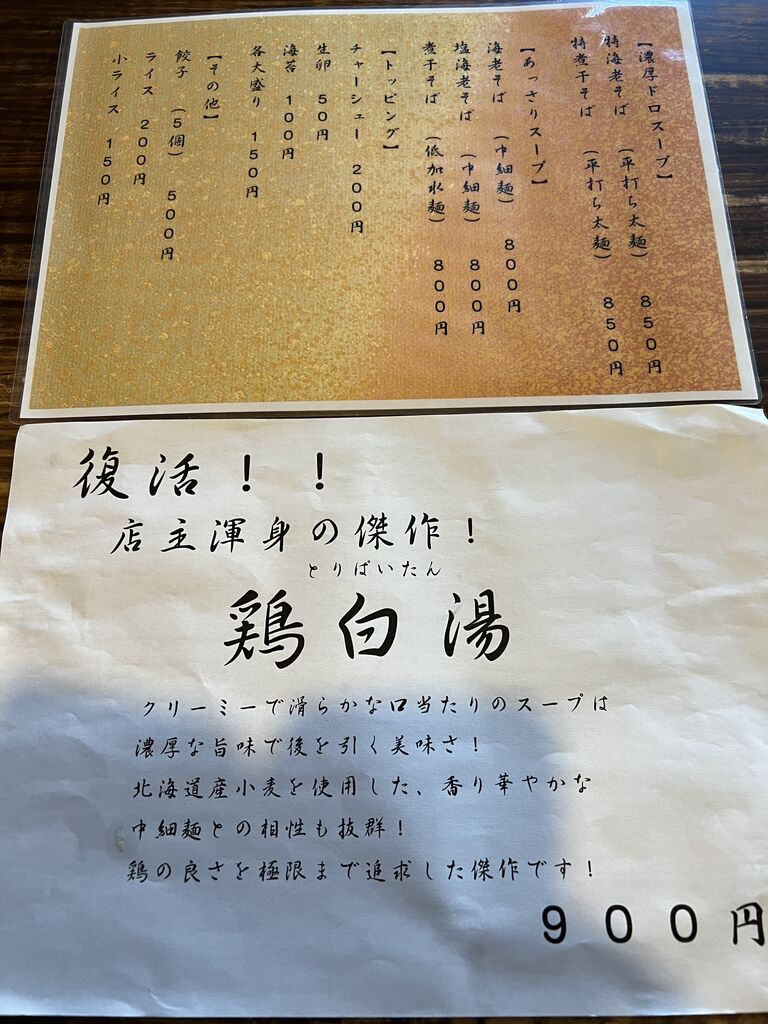 【濃厚ドロスープ】
特海老そば （平打ち太麺） 850円
特煮干そば （平打ち太麺） 850円
【あっさりスープ】
海老そば （中細麺） 800円
塩海老そば （中細麺） 800円
煮干そば （低加水麺） 800円
【トッピング】
チャーシュー 200円
生卵 50円
海苔 100円
各大盛り 150円
【その他】
餃子 （5個） 500円
ライス 200円
小ライス 150円
復活！！
店主渾身の傑作！
とりぱいたん
鶏白湯
クリーミーで滑らかな口当たりのスープは
濃厚な旨味で後を引く美味さ！
北海道産小麦を使用した、香り華やかな
中細麺との相性も抜群！
鶏の良さを極限まで追求した傑作です！
900円